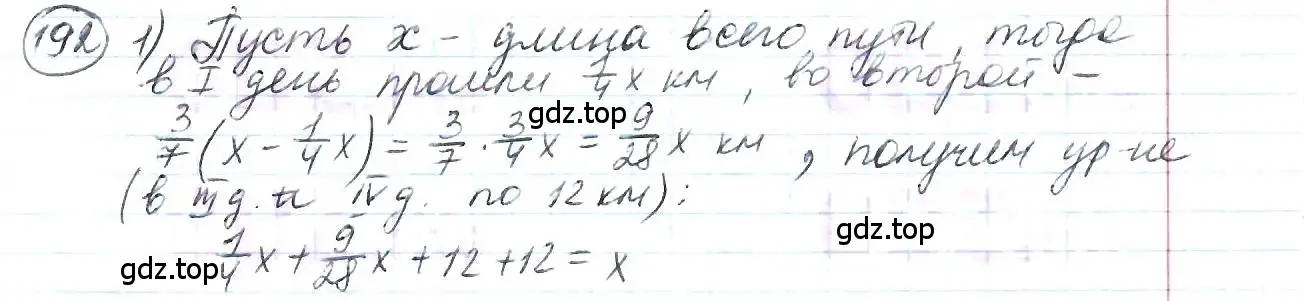 192 1) Пусть x - длина всего пути, тогда
в I день прошли 1/4 x км, во второй -
3/7 (x - 1/4 x) = 3/7 · 3/4 x = 9/28 x км, получим ур-не
gdz.top
(в III д. и IV д. по 12 км):
1/4 x + 9/28 x + 12 + 12 = x
gdz.top
gdz.top